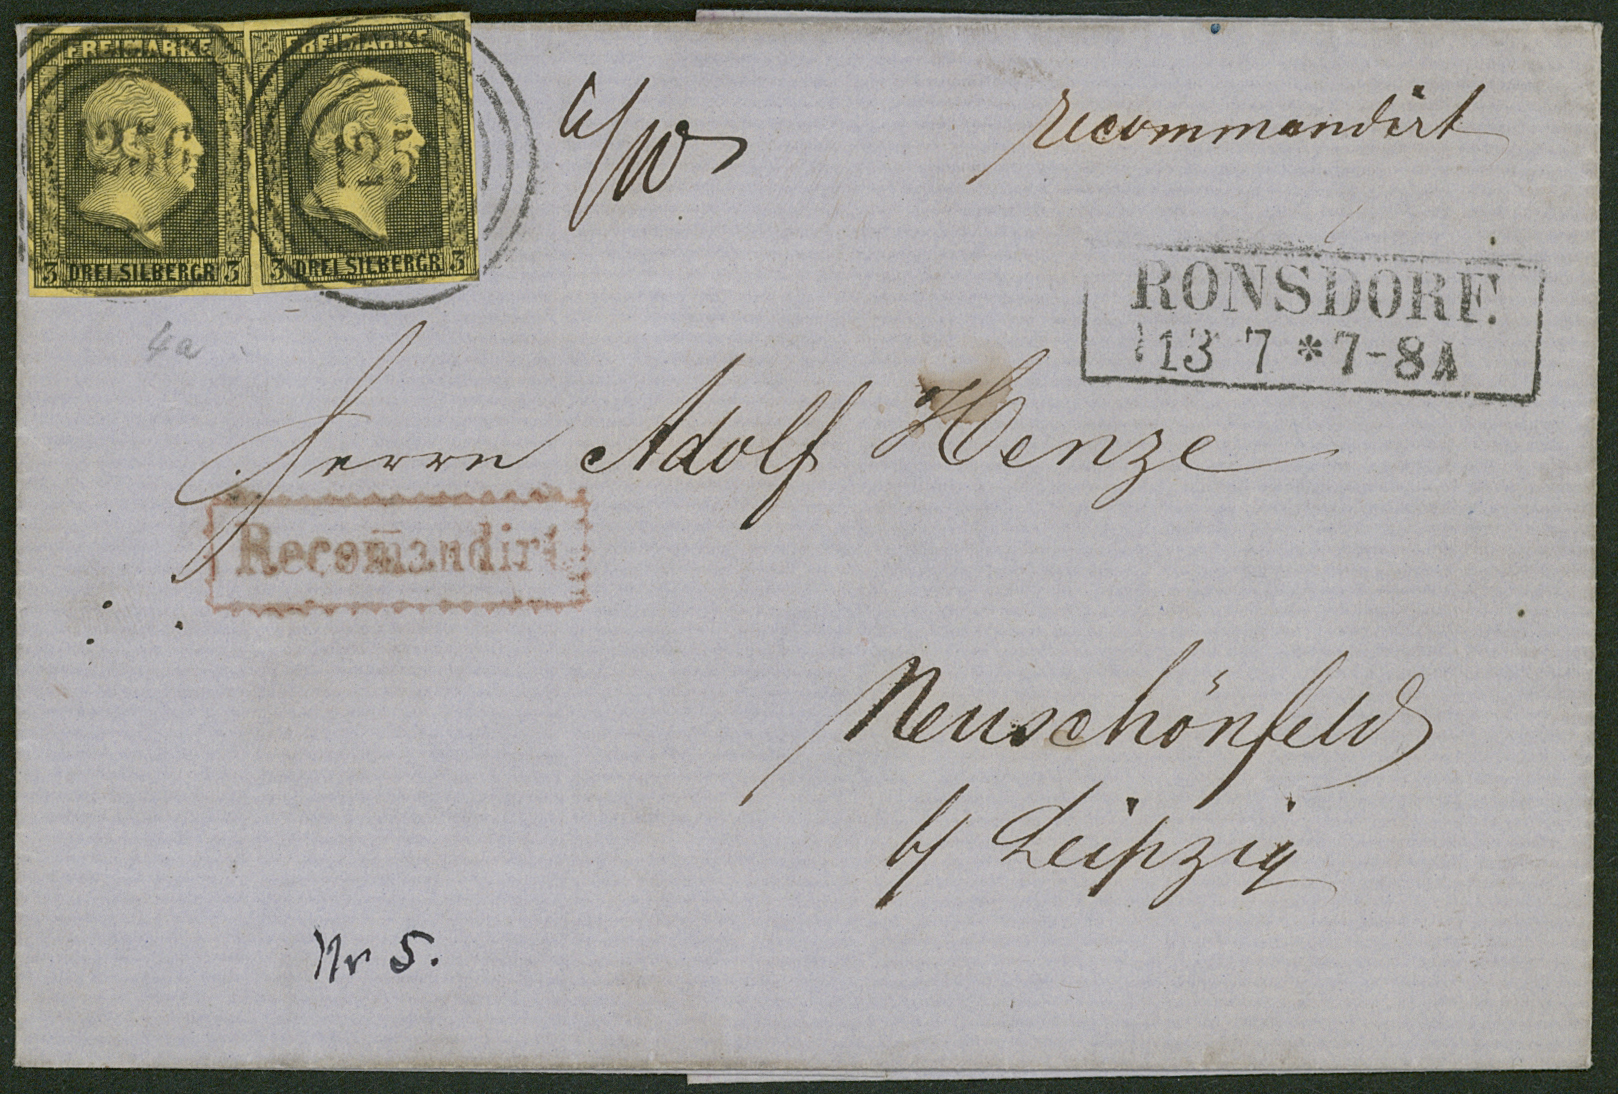 FREIMARKE
3 DREI SILBERGR. 3
FREIMARKE
3 DREI SILBERGR. 3
recommandirt
RONSDORF.
13 7 * 7-8 A
4a
Herrn Adolf Henze
Recom̄andirt
Neuschönfeld
b/ Leipzig
Nr 5.